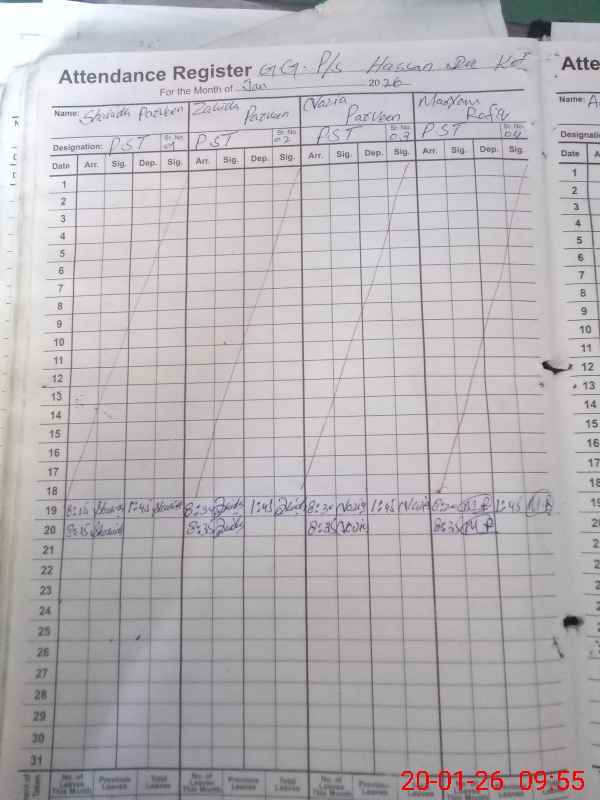 Attendance Register G.G. P/s Hassan Da Kot
For the Month of Jan 2026
Name: Shahida Parveen Zahida Parveen Nazia Parveen Maryam Rafiq
Designation: PST Sr. No. 01 PST Sr. No. 02 PST Sr. No. 03 PST Sr. No. 04
Date Arr. Sig. Dep. Sig. Arr. Sig. Dep. Sig. Arr. Sig. Dep. Sig. Arr. Sig. Dep. Sig.
1
2
3
4
5
6
7
8
9
10
11
12
13
14
15
16
17
18
19 8:15 1:45 8:30 1:45 8:30 Nazia 1:45 Nazia 8:20 M.R 1:45 M.R
20 8:15 8:35 8:35 Nazia 8:35 M.R
21
22
23
24
25
26
27
28
29
30
31
No. of Leaves This Month Previous Leaves Total Leaves No. of Leaves This Month Previous Leaves Total Leaves No. of Leaves This Month Previous Leaves
Atte
Name: A
Designation:
Date Arr.
1
2
3
4
5
6
7
8
9
10
11
12
13
14
15
16
17
18
20-01-26 09:55